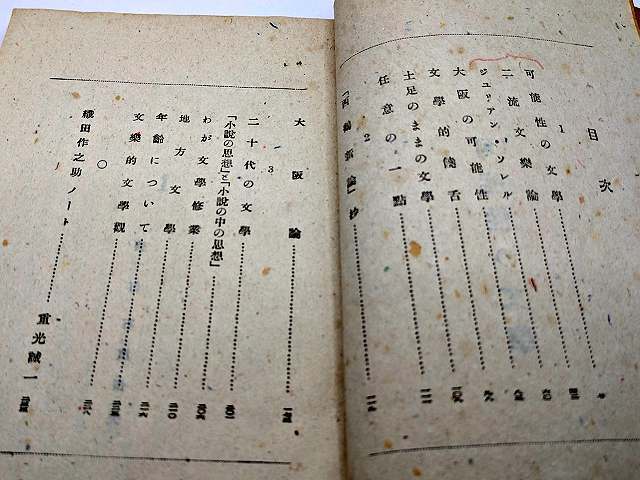 目次
1
可能性の文學
二流文樂論
ジュリアン・ソレル
大阪の可能性
文學的饒舌
土足のままの文學
任意の一點
2
「西鶴新論」抄
大阪論
3
二十代の文學
「小説の思想」と「小説の中の思想」
わが文學修業
地方文學
年齡について
文樂的文學觀
〇
織田作之助ノート 重光誠一